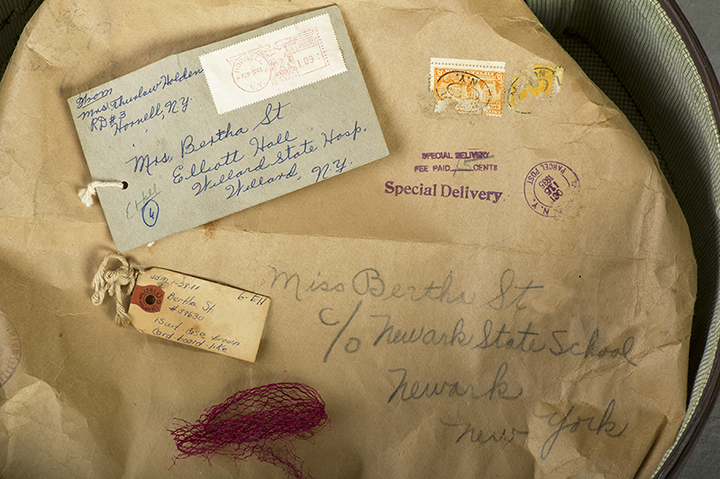 From
Mrs. Thurlow Holden
RD#3
Hornell, N.Y.
Mrs. Bertha St
Elliott Hall
Willard State Hosp.
Willard, N.Y.
Ethel
4
SPECIAL DELIVERY
FEE PAID CENTS
Special Delivery
PARCEL POST
OCT
N.Y.
6-E11
Bertha St.
#38630
1 Suit Case Brown
Card board-like
Miss Bertha St
c/o Newark State School
Newark
New York